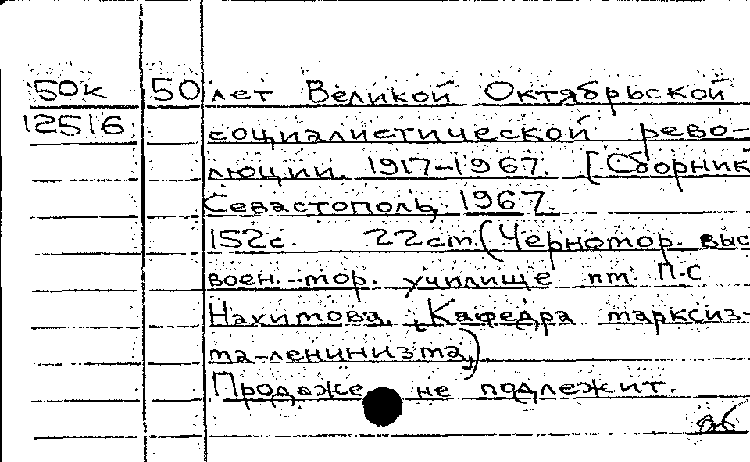 50к 50 лет Великой Октябрьской
12516 социалистической рево-
люции. 1917-1967. [Сборник
Севастополь, 1967.
152с. 22ст. (Черномор. выс
воен.-мор. училище им. П.С
Нахимова. Кафедра марксиз-
ма-ленинизма)
Продаже не подлежит.